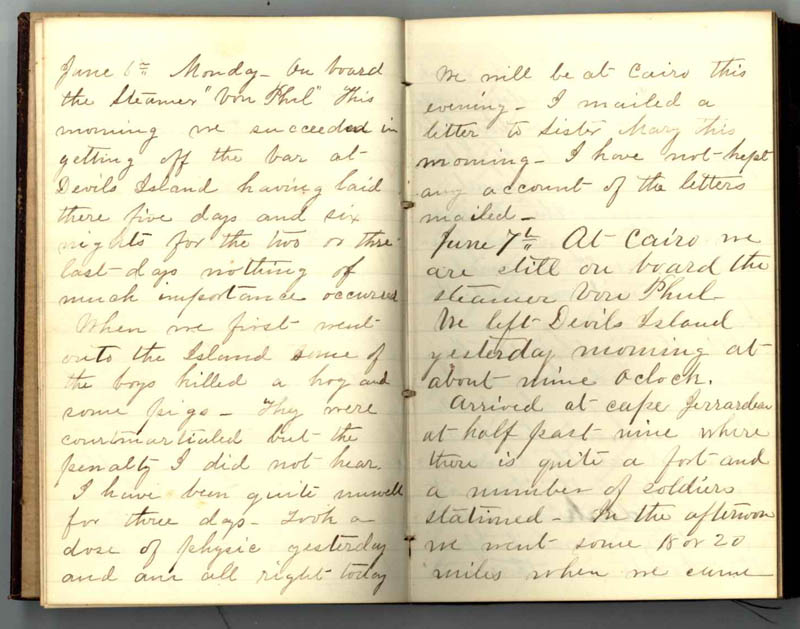 June 6th Monday- On board
the Steamer "Von Phul" This
morning we succeeded in
getting off the bar at
Devils Island having laid
there five days and six
nights for the two or three
last days nothing of
much importance occurred
When we first went
onto the Island some of
the boys killed a hog and
some pigs - Thy were
courtmartialed but the
penalty I did not hear.
I have been quite unwell
for three days - Took a
dose of physic yesterday
and am all right today
We will be at Cairo this
evening - I mailed a
letter to Sister Mary this
morning - I have not kept
any account of the letters
mailed -
June 7th At Cairo we
are still on board the
steamer Von Phul-
We left Devils Island
yesterday morning at
about nine Oclock.
Arrived at cape Jerrardeau
at half past nine where
there is quite a fort and
a number of soldiers
stationed - In the afternoon
we went some 18 or 20
miles when we came